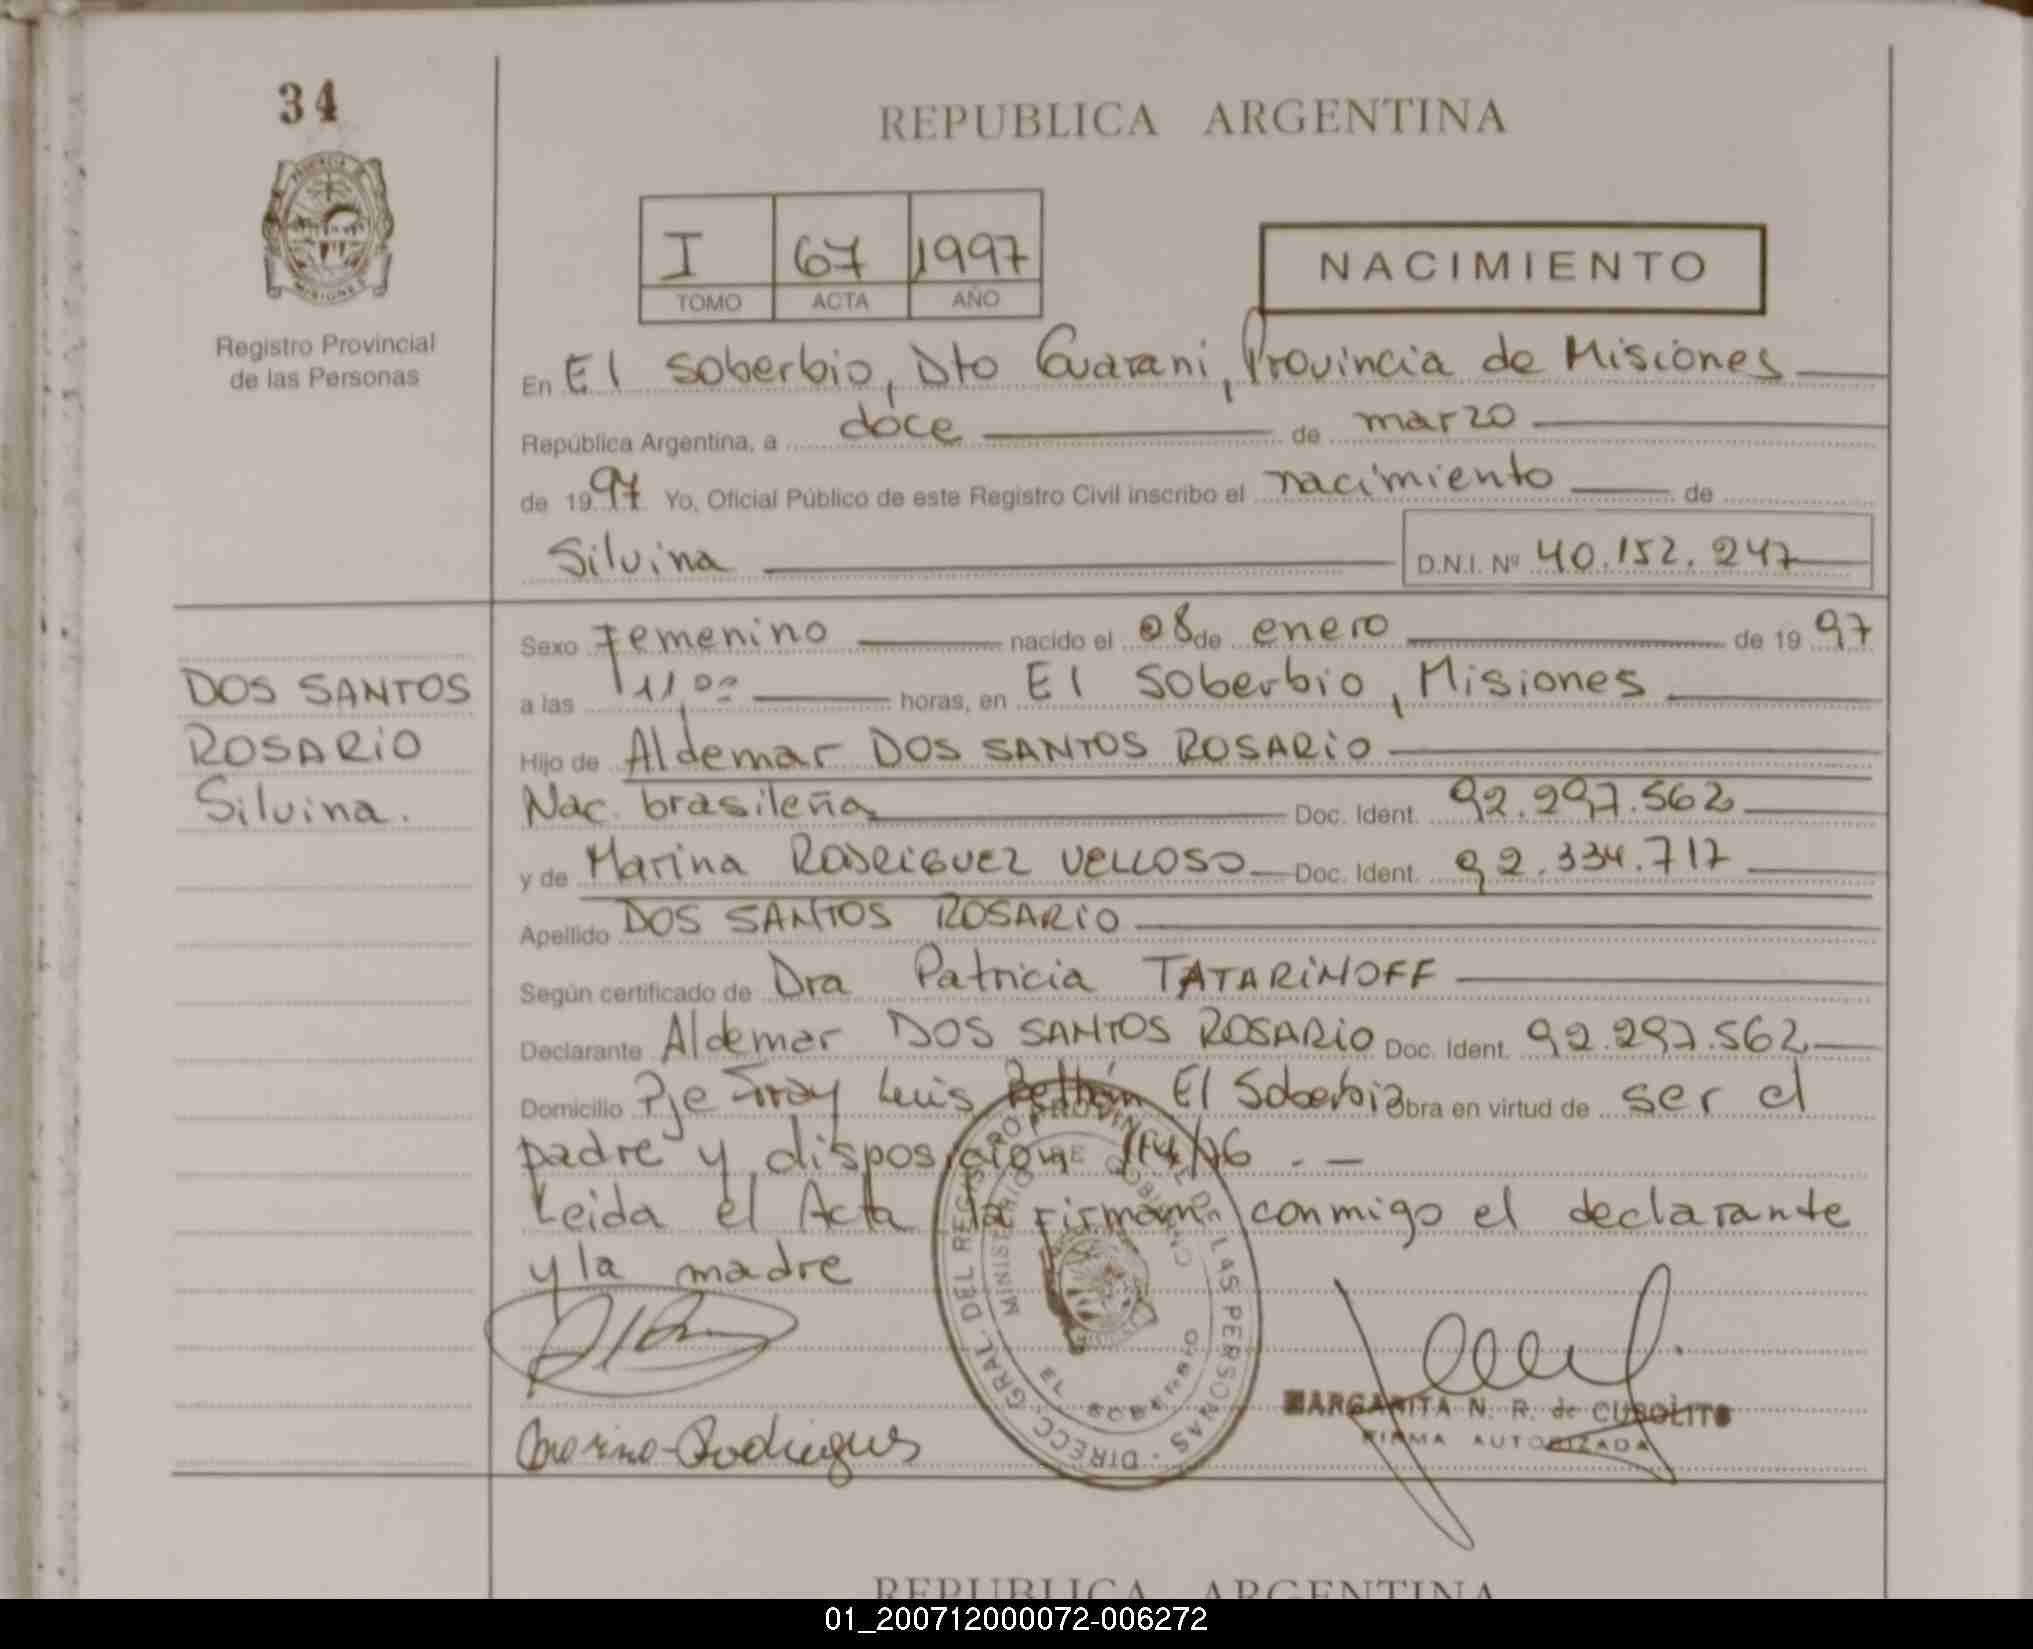 34
PROVINCIA DE
MISIONES
Registro Provincial
de las Personas
REPUBLICA ARGENTINA
I 67 1997
TOMO ACTA AÑO
NACIMIENTO
En El Soberbio, Dto Guarani, Provincia de Misiones
República Argentina, a doce de marzo
de 1997 Yo, Oficial Público de este Registro Civil inscribo el nacimiento de
Silvina D.N.I. Nº 40.152.247
DOS SANTOS
ROSARIO
Silvina.
Sexo Femenino nacido el 08 de enero de 1997
a las 11,00 horas, en El Soberbio, Misiones
Hijo de Aldemar DOS SANTOS ROSARIO
Nac. brasileña Doc. Ident. 92.297.562
y de Marina RODRIGUEZ VELLOSO Doc. Ident. 92.334.717
Apellido DOS SANTOS ROSARIO
Según certificado de Dra Patricia TATARINOFF
Declarante Aldemar DOS SANTOS ROSARIO Doc. Ident. 92.297.562
Domicilio Pje Fray Luis Beltrán El Soberbio Obra en virtud de ser el
padre y disposición 14/96 . -
Leida el Acta la firman conmigo el declarante
y la madre
DIRECC. GRAL. DEL REGISTRO PROVINC. DE LAS PERSONAS
MINISTERIO DE GOBIERNO
EL SOBERBIO
Marina Rodrigues
MARGARITA N. R. de CUBOLITO
FIRMA AUTORIZADA
REPUBLICA ARGENTINA
01_200712000072-006272